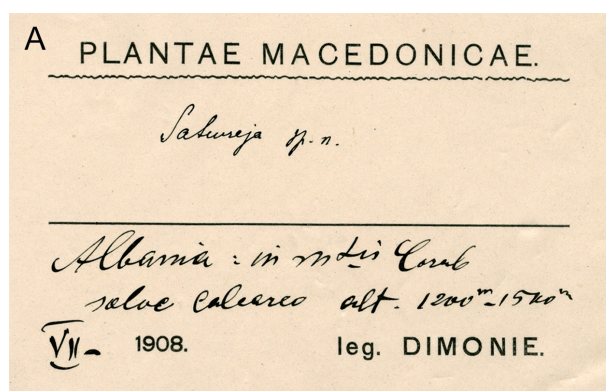 A
PLANTAE MACEDONICAE.
Satureja sp. n.
Albania: in mtis Corab
solve calcareo alt. 1200m-1500m
VII- 1908. leg. DIMONIE.